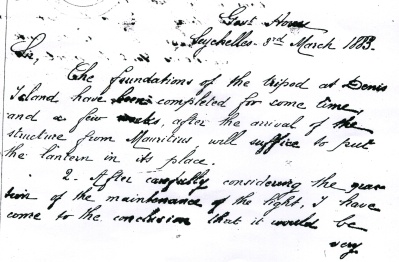 Govt House
Seychelles. 3rd March 1883.
Sir,
The foundations of the tripod at Denis
Island have been completed for some time,
and a few weeks, after the arrival of the
structure from Mauritius, will suffice to put
the lantern in its place.
2. After carefully considering the ques-
tion of the maintenance of the light, I have
come to the conclusion that it would be
very